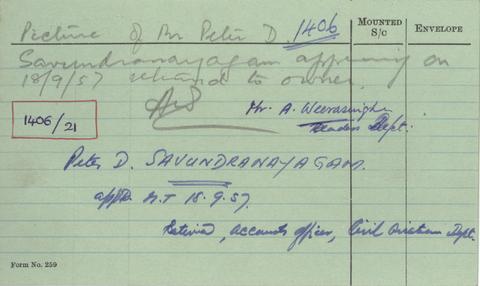 Picture of Mr Peter D. 1406
MOUNTED S/C
ENVELOPE
Savundranayagam appearing on
18/9/57 returned to owner.
Mr. A. Weerasinghe
Readers Dept.
1406/21
Peter D. SAVUNDRANAYAGAM.
appd. M.T 18.9.57.
Retired, accounts officer, Civil Aviation Dept.
Form No. 259